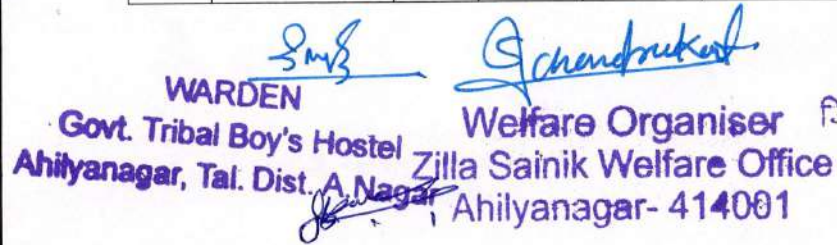 WARDEN
Govt. Tribal Boy's Hostel
Ahilyanagar, Tal. Dist. A.Nagar
Welfare Organiser
Zilla Sainik Welfare Office
Ahilyanagar- 414001